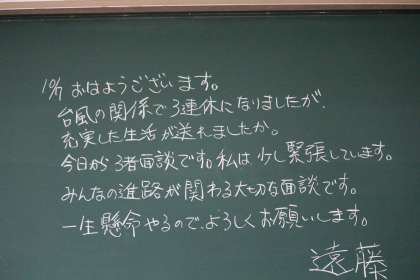 10/7 おはようございます。
台風の関係で3連休になりましたが、
充実した生活が送れましたか。
今日から3者面談です。私は少し緊張しています。
みんなの進路が関わる大切な面談です。
一生懸命やるので、よろしくお願いします。
遠藤